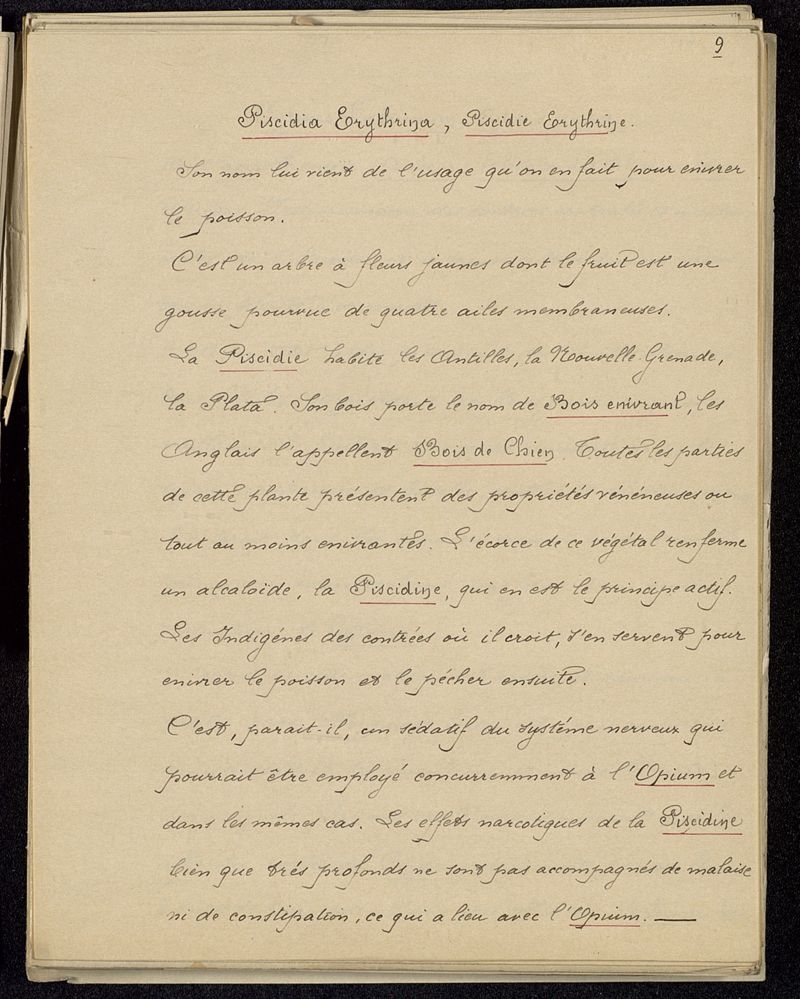 9
Piscidia Erythrina, Piscidie Erythrine.
Son nom lui vient de l'usage qu'on en fait pour enivrer
le poisson.
C'est un arbre à fleurs jaunes dont le fruit est une
gousse pourvue de quatre ailes membraneuses.
La Piscidie habite les Antilles, la Nouvelle-Grenade,
la Plata. Son bois porte le nom de Bois enivrant, les
Anglais l'appellent Bois de Chien. Toutes les parties
de cette plante présentent des propriétés vénéneuses ou
tout au moins enivrantes. L'écorce de ce végétal renferme
un alcaloïde, la Piscidine, qui en est le principe actif.
Les Indigénes des contrées où il croit, s'en servent pour
enivrer le poisson et le pécher ensuite.
C'est, parait-il, un sédatif du systéme nerveux qui
pourrait être employé concurremment à l'Opium et
dans les mêmes cas. Les effets narcotiques de la Piscidine
bien que trés profonds ne sont pas accompagnés de malaise
ni de constipation, ce qui a lieu avec l'Opium. —